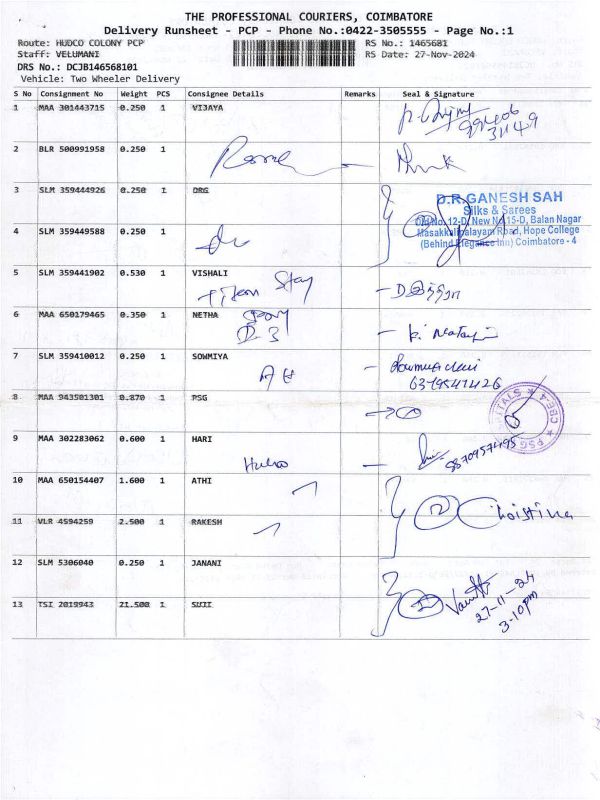 THE PROFESSIONAL COURIERS, COIMBATORE
Delivery Runsheet - PCP - Phone No.:0422-3505555 - Page No.:1
Route: HUDCO COLONY PCP RS No.: 1465681
Staff: VELUMANI RS Date: 27-Nov-2024
DRS No.: DCJB146568101
Vehicle: Two Wheeler Delivery
S No Consignment No Weight PCS Consignee Details Remarks Seal & Signature
1 MAA 301443715 0.250 1 VIJAYA
2 BLR 500991958 0.250 1
3 SLM 359444926 0.250 1 DRG
D.R.GANESH SAH
Silks & Sarees
Old No. 12-D, New No 15-D, Balan Nagar
Masakkalipalayam Road, Hope College
(Behind Elegance Inn) Coimbatore - 4
4 SLM 359449588 0.250 1
5 SLM 359441902 0.530 1 VISHALI
6 MAA 650179465 0.350 1 NETHA
7 SLM 359410012 0.250 1 SOWMIYA
6379541426
8 MAA 943501301 0.870 1 PSG
PSG CBE-4
9 MAA 302283062 0.600 1 HARI
8870957495
10 MAA 650154407 1.600 1 ATHI
12 Christina
11 VLR 4594259 2.500 1 RAKESH
12 SLM 5306040 0.250 1 JANANI
27-11-24
3-10pm
13 TSI 2019943 21.500 1 SUJI